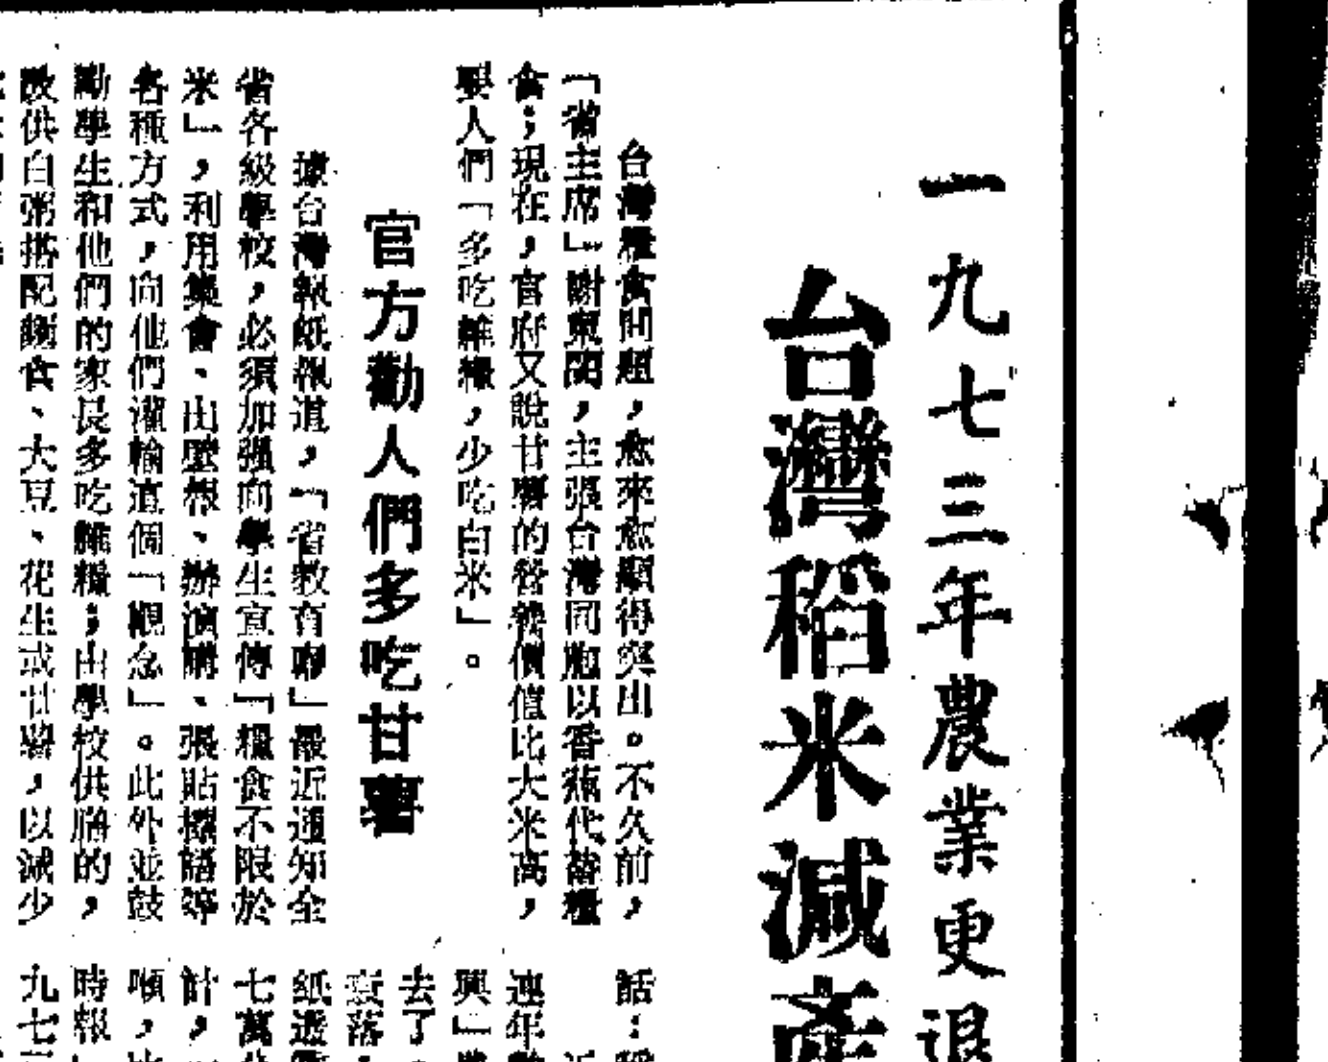 一九七三年農業更退
台灣稻米減產
台灣糧食問題，愈來愈顯得突出。不久前，
「省主席」謝東閔，主張台灣同胞以香蕉代替糧
食；現在，官府又說甘薯的營養價值比大米高，
要人們「多吃雜糧，少吃白米」。
官方勸人們多吃甘薯
據台灣報紙報道，「省教育廳」最近通知全
省各級學校，必須加强向學生宣傳「糧食不限於
米」，利用集會、出壁報、辦演講、張貼標語等
各種方式，向他們灌輸這個「觀念」。此外並鼓
勵學生和他們的家長多吃雜糧；由學校供膳的，
設供白粥搭配麵食、大豆、花生或甘薯，以減少
話：
連年
興」
去了。
衰落，
紙透
七萬
計，
噸，
時報」
九七三